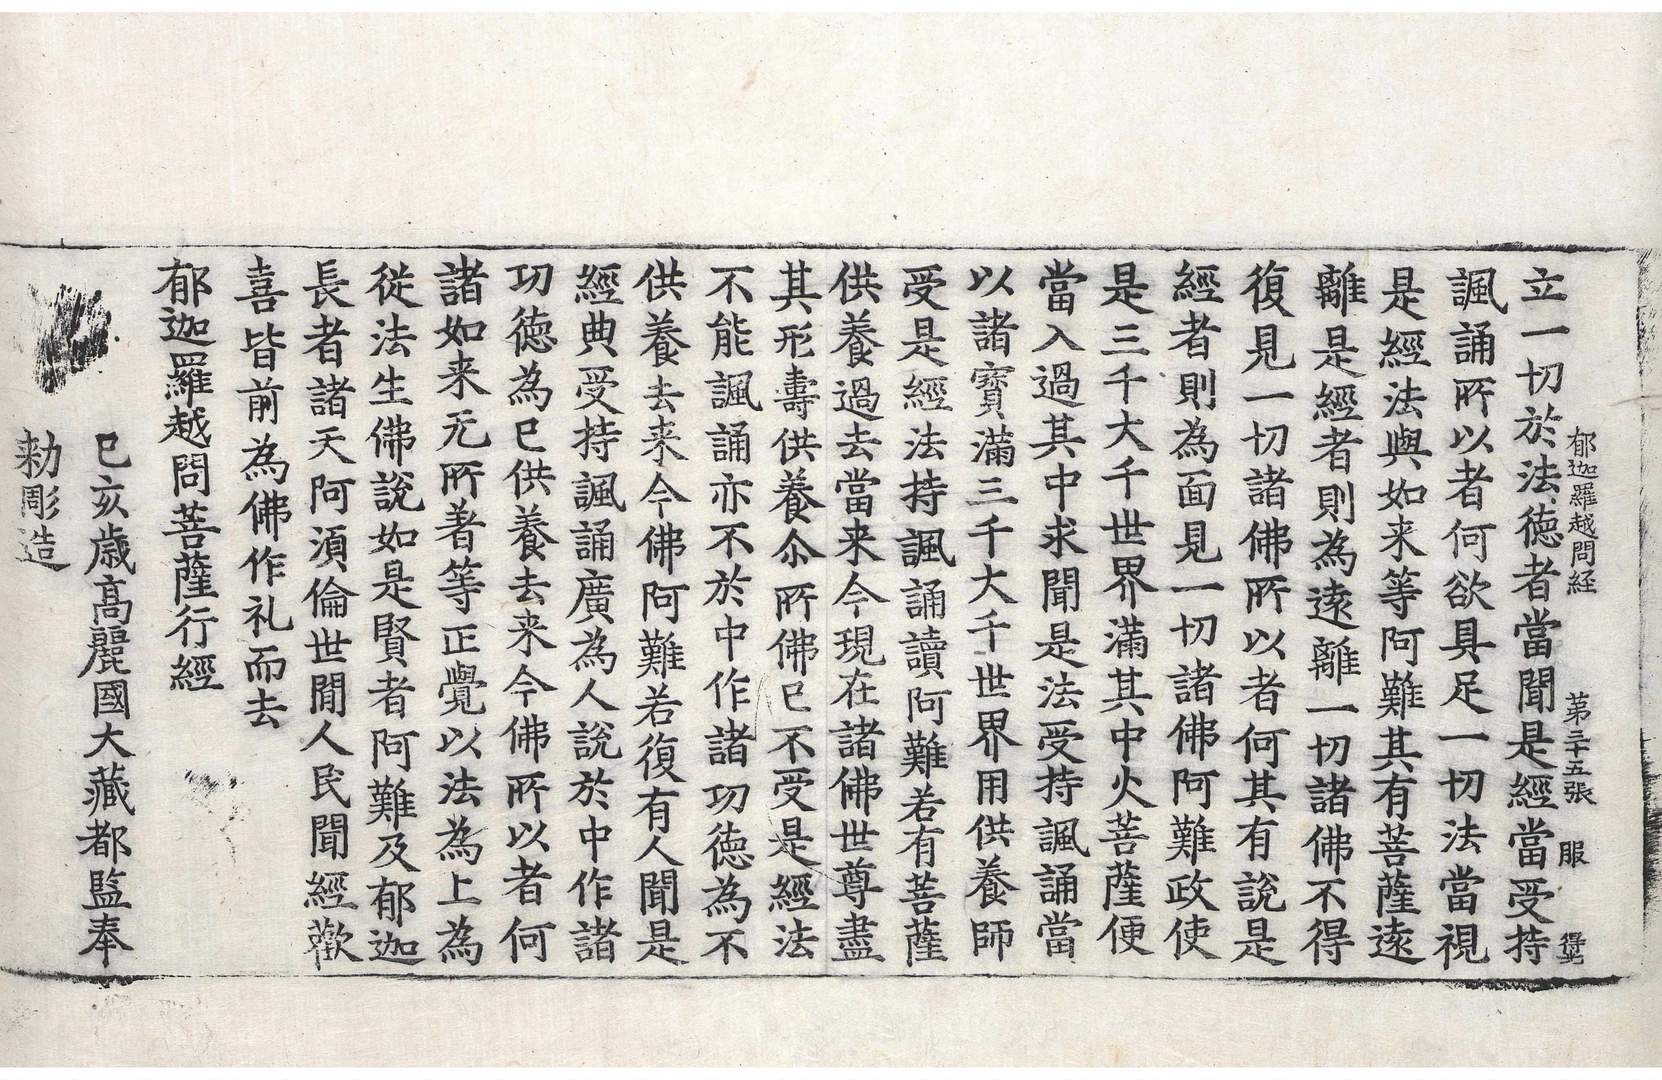 郁迦羅越問経 第二十五張 服
立一切於法德者當聞是經當受持
諷誦所以者何欲具足一切法當視
是經法與如来等阿難其有菩薩遠
離是經者則為遠離一切諸佛不得
復見一切諸佛所以者何其有說是
經者則為面見一切諸佛阿難政使
是三千大千世界滿其中火菩薩便
當入過其中求聞是法受持諷誦當
以諸寳滿三千大千世界用供養師
受是經法持諷誦讀阿難若有菩薩
供養過去當来今現在諸佛世尊盡
其形壽供養尒所佛已不受是經法
不能諷誦亦不於中作諸功德為不
供養去来今佛阿難若復有人聞是
經典受持諷誦廣為人說於中作諸
功德為已供養去来今佛所以者何
諸如来无所著等正覺以法為上為
從法生佛說如是賢者阿難及郁迦
長者諸天阿湏倫世閒人民聞經歡
喜皆前為佛作礼而去
郁迦羅越問菩薩行經
己亥歳髙麗國大藏都監奉
勑彫造